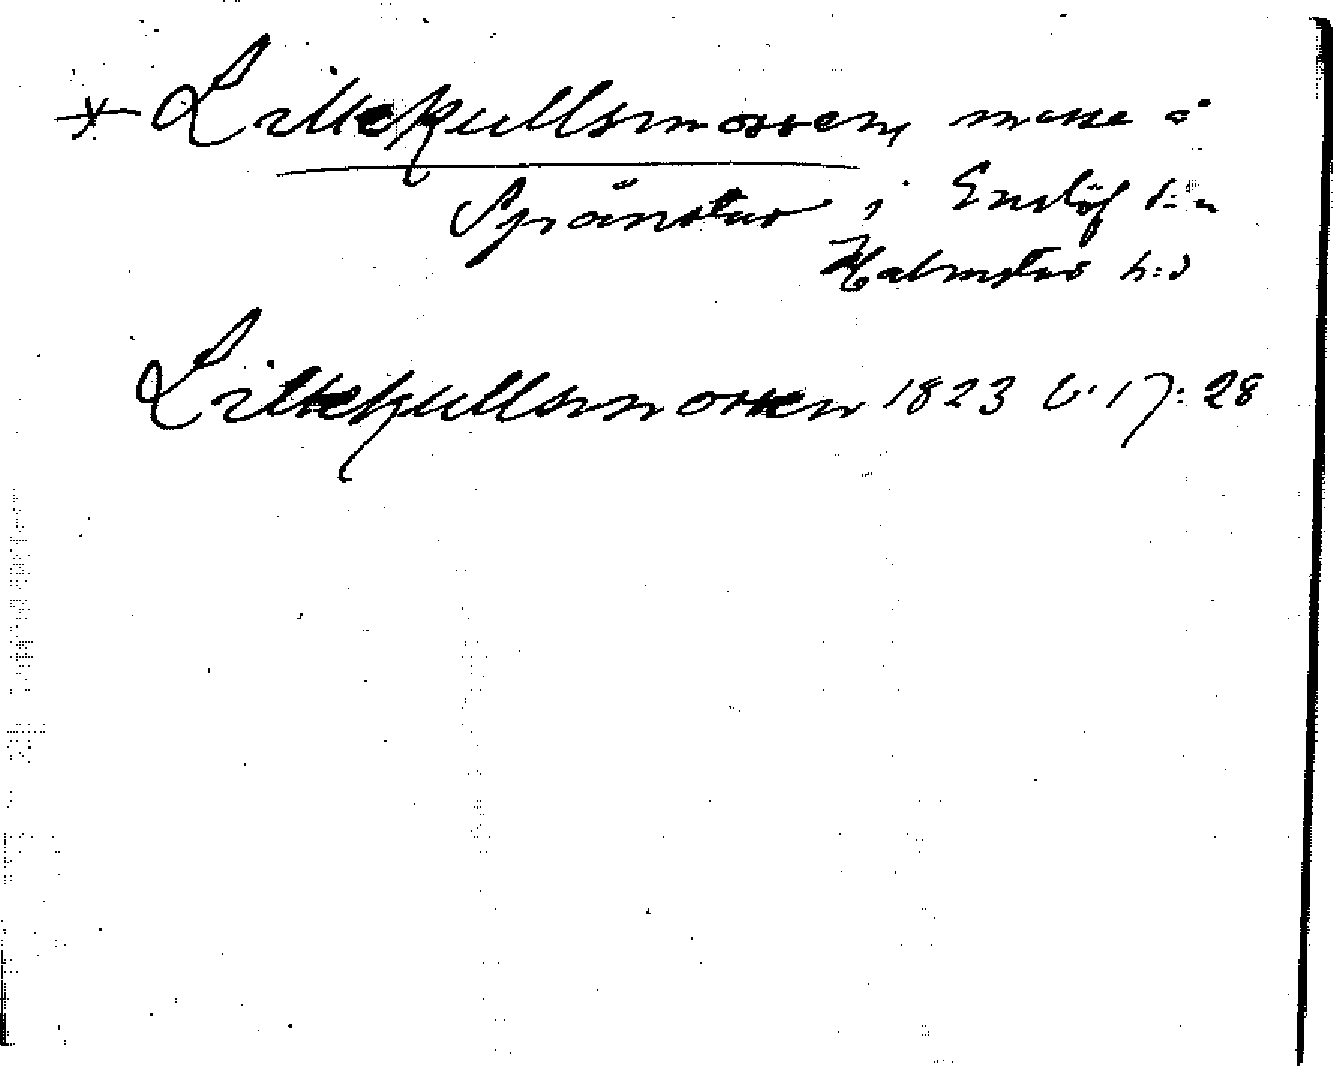 * Lillekullsmossen, mosse å
Spränstad i Enslöf s:n
Halmstad h:d
Lillekullsmossen 1823 l. 17: 28